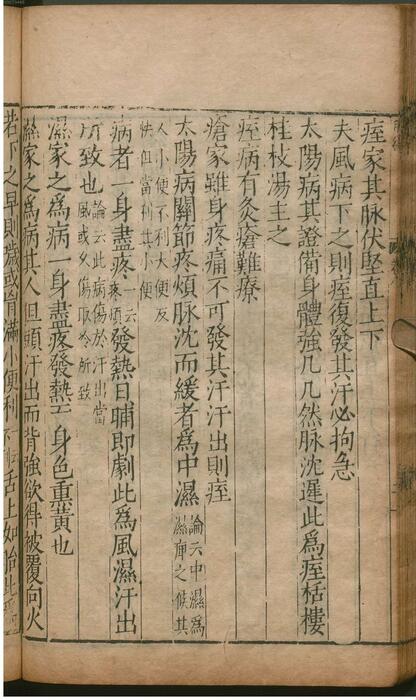 痓家其脉伏堅直上下
夫風病下之則痓復發其汗必拘急
太陽病其證備身體強几几然脉沈遲此為痓栝樓
桂枝湯主之
痓病有灸瘡難療
瘡家雖身疼痛不可發其汗汗出則痓
太陽病關節疼煩脉沈而緩者為中濕論云中濕為濕痺之候其
人小便不利大便反快但當利其小便
病者一身盡疼一云疼煩發熱日晡即劇此為風濕汗出
所致也論云此病傷於汗出當風或久傷取冷所致
濕家之為病一身盡疼發熱而身色熏黃也
濕家之為病其人但頭汗出而背強欲得被覆向火
若下之早則噦或胷滿小便利舌上如胎此為